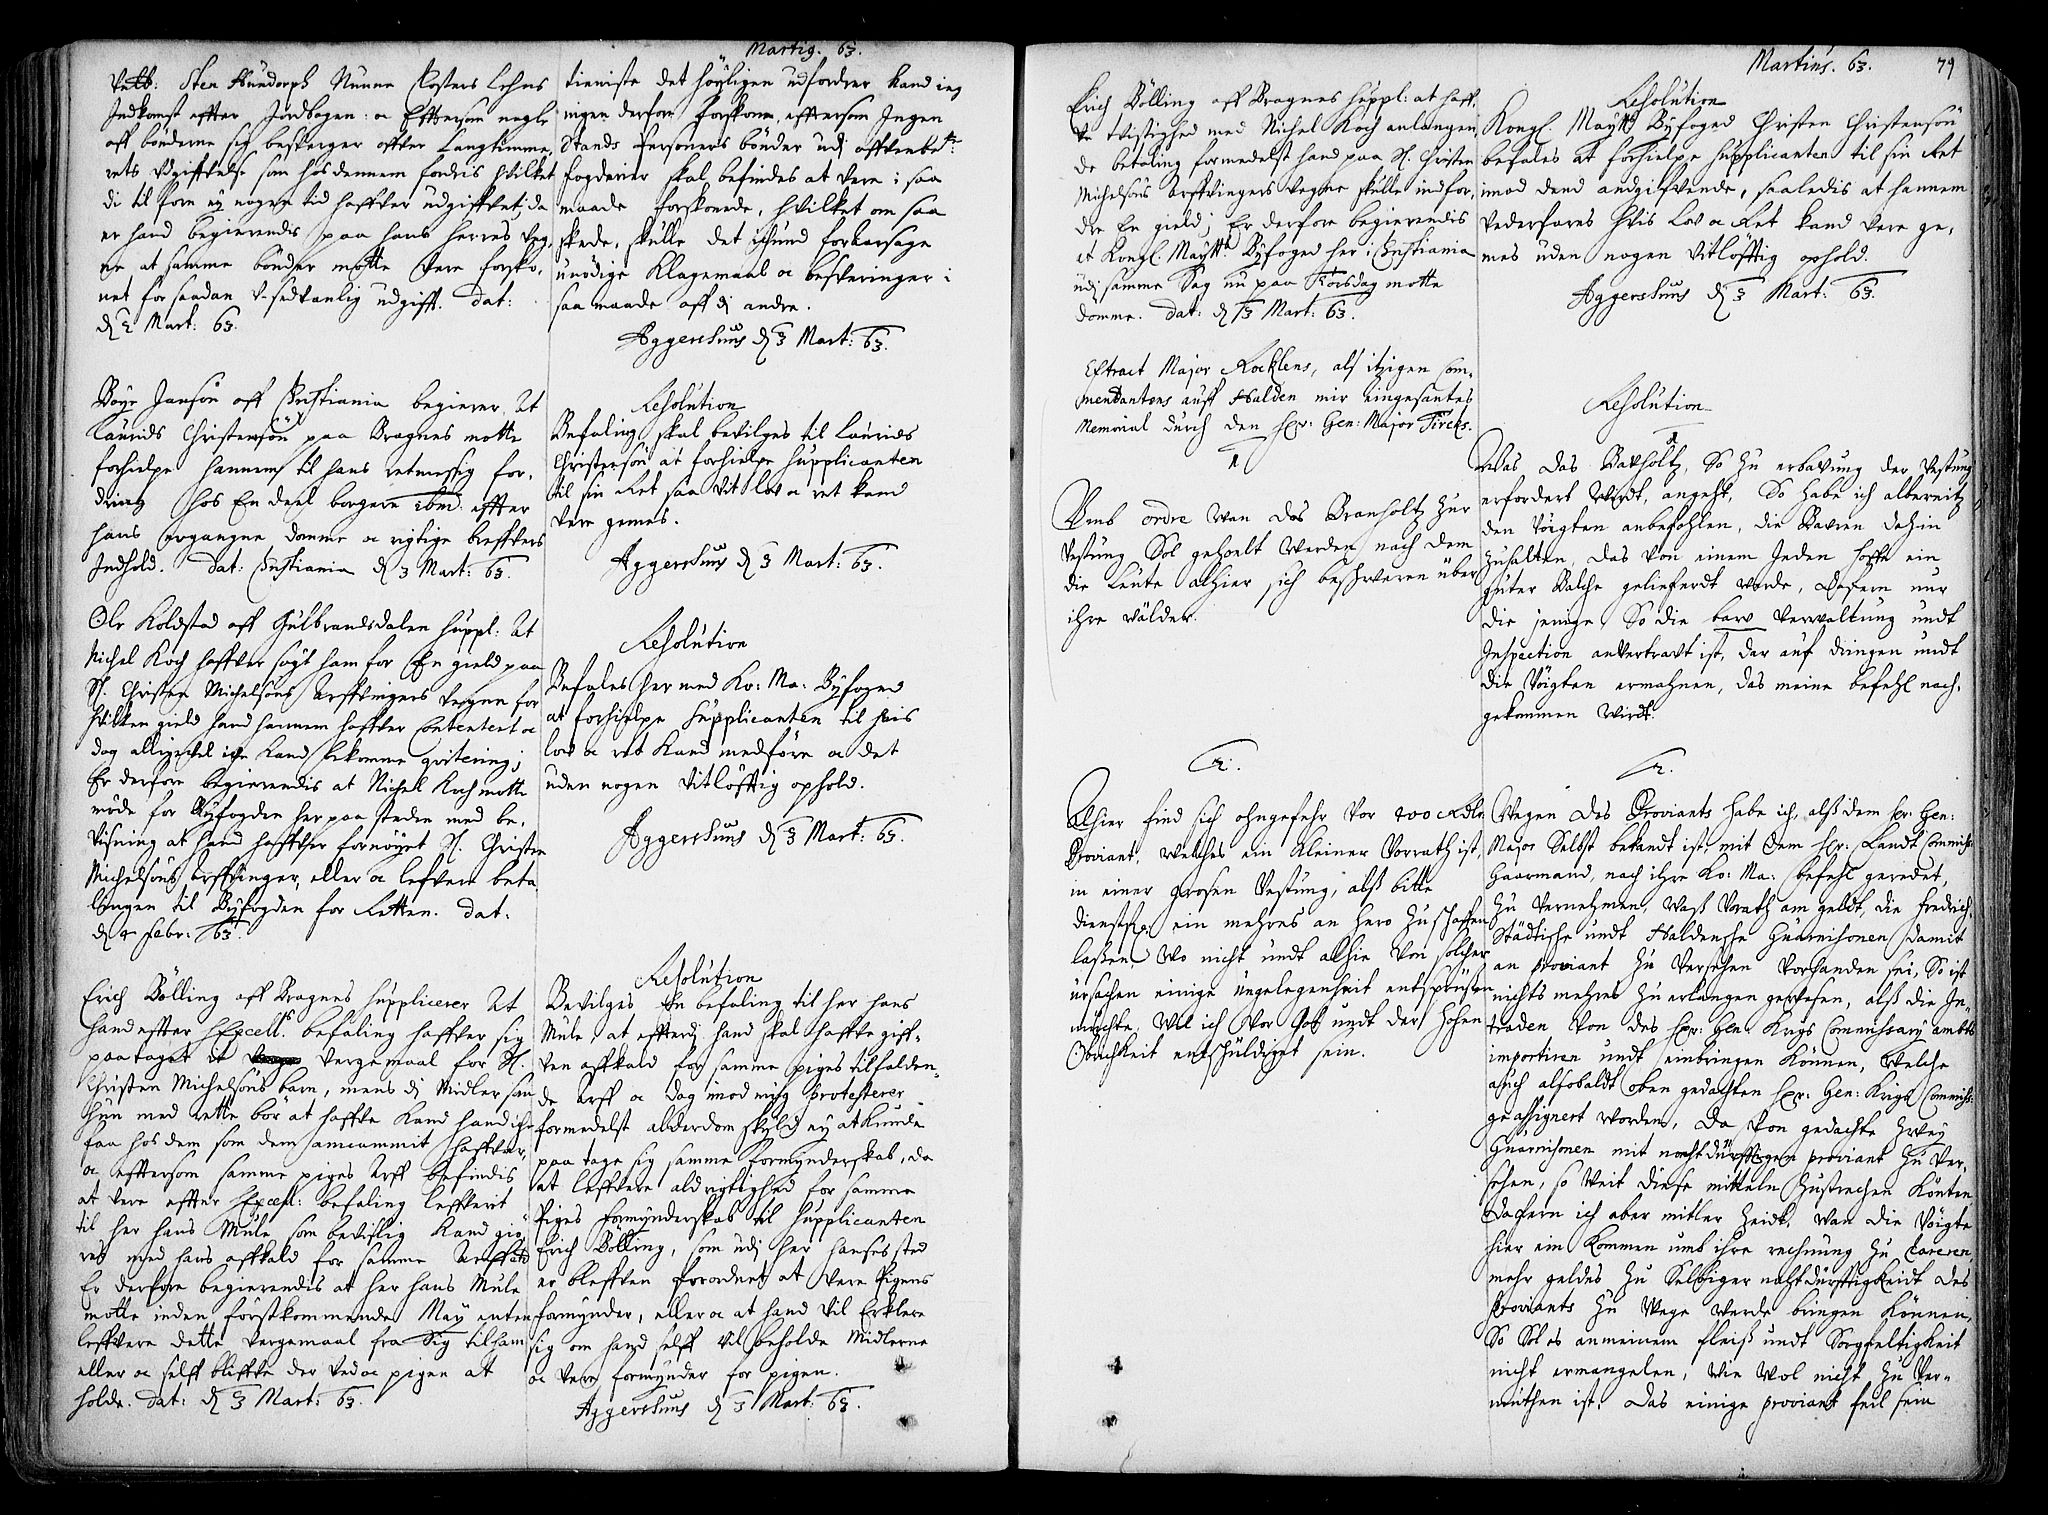 Martig. 63.
Vetb: Sten Hundorph Nunne Closters Lehns
Indkomst effter Jordbogen: oc Effttersom nogle
aff bønderne sig beskerger offver Langtimme,
rets Vdgifftvelse som hos dennem fordris hvilket
di til forn ej nogen tid haffver udgiffvet, da
er hand begierendis paa hans herres veg,
ne, at samme bønder motte vere forsko,
net for saadan v-sedvanlig udgifft. Dat:
d 2 Mart: 63.
Boye Jansøn aff Christiania begierer, At
Laurids Christensøn paa Bragnes motte
forhielpe hannem til hans retmessig for,
dring hos En deel borgere ibm: effter
hans ergangne domme oc rigtige breffvers
Indhold. Dat: Christiania d 3 Mart: 63.
Ole Koldstad aff Gulbrandsdalen suppl: At
Nichel Koch haffver søgt ham for En gield paa
Sl. Christen Michelsøns Arffvingers vegne for
hvilken gield hand hannem haffver Contentert oc
dog alligevel icke kand bekomme qvitering;
Er derfore begierendis at Nichel Koch motte
møde for Byfogden her paa steden med be,
visning at hand haffver fornøyet Sl. Christen
Michelsøns Arffvinger, eller oc lefvere beta,
lingen til Byfogden for Retten. Dat:
d 4 Febr: 63.
Erich Bølling aff Bragnes supplicerer At
hand effter Excell:s befaling haffver sig
paataget it vergemaal for Sl.
Christen Michelsøns barn, mens di Midler som
hun med rette bør at haffve kand hand icke
faa hos dem som dem annammit haffver,
oc efftersom samme piges Arff befindis
at vere effter Excell: befaling leffverit
til her hans Mule som bevislig kand giø,
ris med hans affkald for samme Arffve
Er derfore begierendis at her hans Mule
motte inden førstkommende May enten
leffvere dette vergemaal fra sig til ham
eller oc selff bliffve der ved oc pigen at
holde. Dat: d 3 Mart: 63.
tieniste det høyligen udfordrer kand ieg
ingen derfore forskone, efftersom Ingen
Stands Personers bønder udi
fogderier skal befindes at vere i saa
maade forskonede, hvilket om saa
skede, skulle det ickund forvarsage
unødige klagemaal oc besveringer i
saa maade aff di andre.
Aggershuus d 3 Mart: 63.
Resolution
Befaling skal bevilges til Laurids
Christensøn at forhielpe Supplicanten
til sin Ret saa vit lov oc ret kand
vere gemes.
Aggershuus d 3 Mart: 63.
Resolution
Befales her med Ko: Ma: Byfoged
at forhielpe Supplicanten til hvis
lov oc ret kand medføre oc det
uden nogen vitløfftig ophold.
Aggershuus d 3 Mart: 63.
Resolution
Bevilges En befaling til her hans
Mule, at efftterdi hand skal haffve giff,
ven affkald for samme piges tilfalden,
de Arff oc dog imod mig protesterer
formedelst alderdom skyld ej at kunde
paa tage sig samme formynderskab, da
at leffvere ald rigtighed for samme
Piges formynderskab til Supplicanten
Erich Bølling, som udi her hanses sted
er bleffven forordnet at vere Pigens
formynder, eller oc at hand vil Erklere
sig om hand selff vil beholde Midlerne
oc vere formynder for pigen.
Aggershuus d 3 Mart: 63.
Martius. 63.
79
Erich Bølling aff Bragnes suppl: at haff,
ve tvistighed med Nichel Koch anlangen,
de betaling formedelst hand paa Sl. Christen
Michelsøns Arffvingers vegne skulle indfor,
dre En gield; Er derfore begierendis
at Kongl. Maytt: Byfoged her i Christiania
udi samme Sag nu paa Torsdag motte
domme. Dat: d 3 Mart: 63.
Extract Major Kocklens, als itzigen Com,
mendantens auff Halden mir eingesantes
Memorial durch den Hr: Gen: Major Fircks.
1
Umb ordre wan das Branholtz zur
Vestung sol geholt werden nach dem
die Leute alhier sich beschweren über
ihre wälder.
2.
Alhier find sich ohngefehr vor 200 Rdlr
Proviant, welches ein kleiner Vorrath ist,
in einer grosen Vestung, alss bitte
dienstl. ein mehres an hero zu schaffen
lassen, wo nicht undt alhie von solcher
ursachen einige ungelegenheit entsprüssen
müchte, wil ich vor Got undt der hohen
Obrichkeit entschuldiget sein.
Resolution
Kongl. Maytt: Byfoged Christen Christensøn
befales at forhielpe Supplicanten til sin Ret
imod dend andgifvende, saaledis at hannem
vederfares hvis Lov oc Ret kand vere ge,
mes uden nogen vitløfftig ophold.
Aggershuus d 3 Mart: 63.
Resolution
1
Was das Bavholtz, So zu erbavung der Vestung
erfordert wirdt, angeht, So habe ich albereitz
den Vöigten anbefohlen, die Bavren dahin
zuhalten, das von einem Jeden hoffe ein
guter Balche geliefferdt werde, dafern nur
die jenige So die bavv Verwaltung undt
Inspection anvertravt ist, dar auf dringen undt
die Vöigten ermahnen, das meine befehl nach,
gekommen wirdt.
2.
Wegen des Proviants habe ich, alss dem Hr: Gen:
Major Selbst bekandt ist, mit dem Hr: Landt Commiss:
Haarmand, nach ihre Ko: Ma: befehl geredet,
zu vernehmen, wass Vorath am geldt, die Fredrich,
Städtische undt Haldensche Guarnisonen damit
an proviant zu versehen vorhanden sei, So ist
nichts mehres zu erlangen gewesen, alss die In,
traden von des Hr: Gen: Krigs Commissary ambts
importiren undt einbringen können, welche
auch alsobaldt oben gedachten Hr: Gen: Krigs Commiss:
geassignert worden, Da von gedachte zwey
Guarnisonen mit nothdürfftigen proviant zu ver,
sehen, so weit diese mitteln zustrechen könten
Dafern ich aber mitler zeidt, wan die Vöigte
hier ein kommen umb ihre rechnung zu clareren
mehr geldes zu Selbiger nohtdürfftigkeidt des
Proviants zu wege werde bringen können,
So Sol es an meinem fleiss undt Sorgfeltigkeit
nicht ermangelen, Wie wol nicht zu ver,
muthen ist, Das einige proviant feil sein